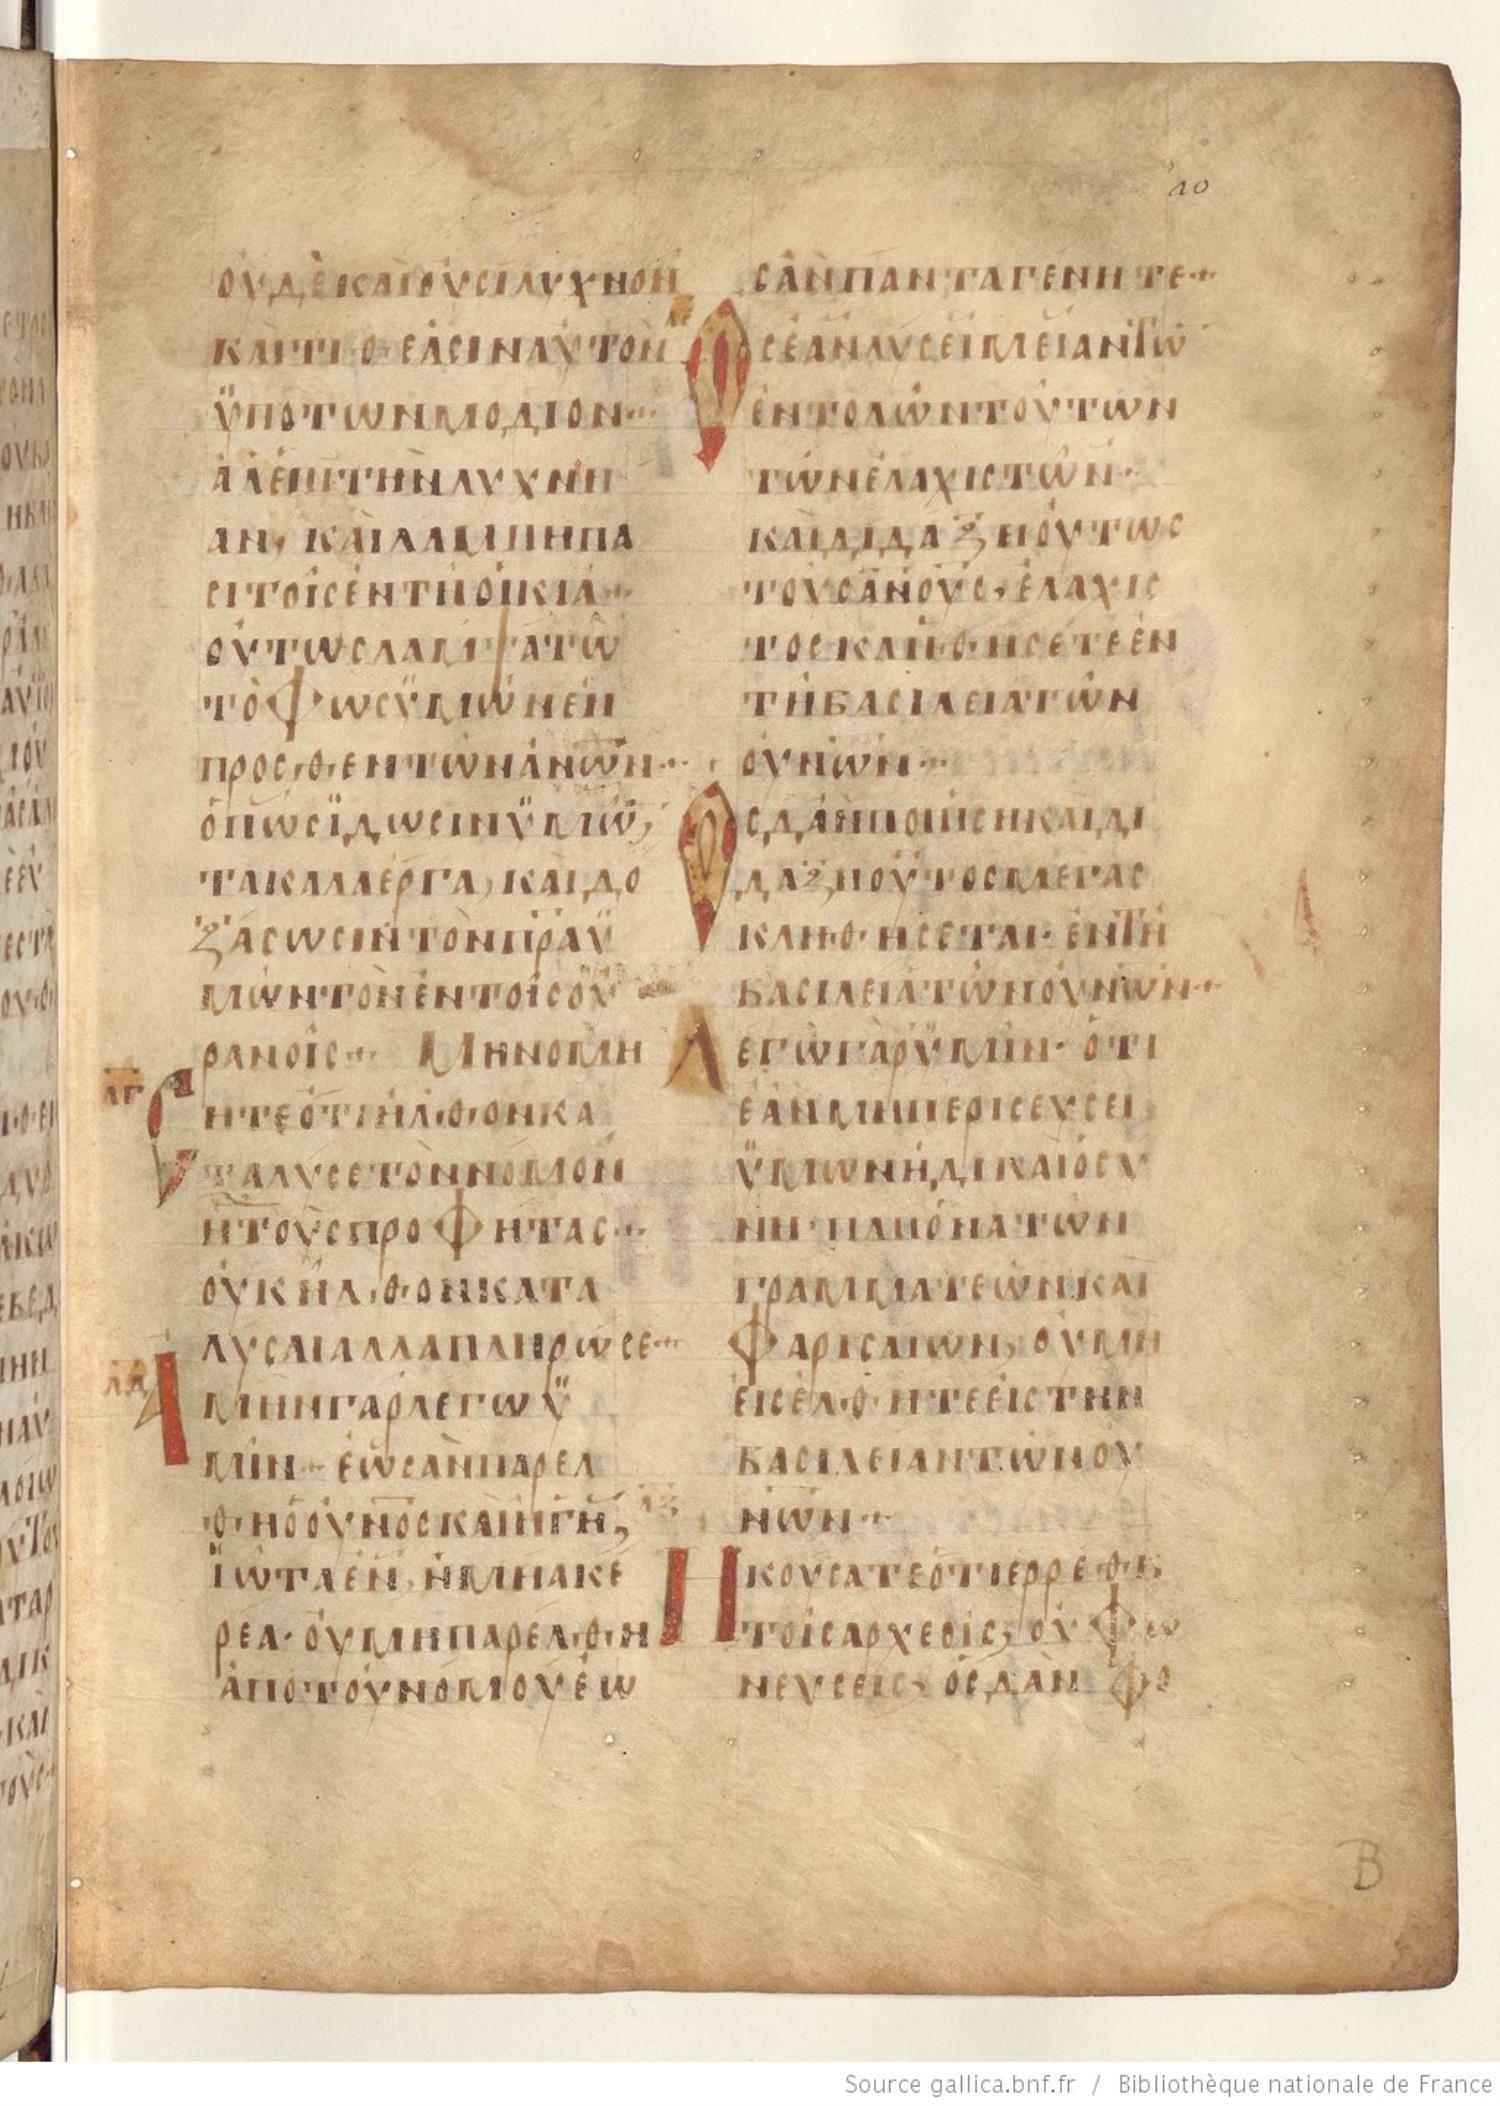 10
ΟΥΔῈ ΚΑΙΟΥΣΙ ΛΥΧΝΟΝ
ΚΑΙ ΤΙΘΕΑΣΙΝ ΑΥΤΟΝ
ΫΠΟ ΤΩΝ ΜΟΔΙΟΝ
ΑΛΕΠΙ ΤΗΝ ΛΥΧΝΗ
ΑΝ, ΚΑΙ ΛΑΜΠΗ ΠΑ
ΣΙ ΤΟΙΣ ΕΝ ΤΗ ΟΙΚΙΑ
ΟΥΤΩΣ ΛΑΜΨΑΤΩ
ΤΟ ΦΩΣ ΫΜΩΝ ΕΝ
ΠΡΟΣΘΕΝ ΤΩΝ ΑΝΩΝ
ΟΠΩΣ ΪΔΩΣΙΝ ΫΜΩ̄,
ΤΑ ΚΑΛΑ ΕΡΓΑ, ΚΑΙ ΔΟ
ΞΑΣΩΣΙΝ ΤΟΝ ΠΡΑ Ϋ
ΜΩΝ ΤΟΝ ΕΝ ΤΟΙΣ ΟΥ
ΡΑΝΟΙΣ ΜΗ ΝΟΜΗ
ΛΓ
ΗΤΕ ΟΤΙ ΗΛΘΟΝ ΚΑ
ΤΑΛΥΣΕ ΤΟΝ ΝΟΜΟΝ
Η ΤΟΥΣ ΠΡΟΦΗΤΑΣ
ΟΥΚ ΗΛΘΟΝ ΚΑΤΑ
ΛΥΣΑΙ ΑΛΛΑ ΠΛΗΡΩΣΕ
ΛΔ
ΑΜΗΝ ΓΑΡ ΛΕΓΩ Ϋ
ΜΙΝ ΕΩΣ ΑΝ ΠΑΡΕΛ
ΘΗ Ο ΟΥΝΟΣ ΚΑΙ Η ΓΗ,
ΪΩΤΑ ΕΝ, Η ΜΗΑ ΚΕ
ΡΕΑ ΟΥ ΜΗ ΠΑΡΕΛΘΗ
ΑΠΟ ΤΟΥ ΝΟΜΟΥ ΕΩ
Σ ΑΝ ΠΑΝΤΑ ΓΕΝΗΤΕ
ΛΕ
ΟΣ ΕΑΝ ΛΥΣΕΙ ΜΕΙΑΝ ΤΩ̄
ΕΝΤΟΛΩΝ ΤΟΥΤΩΝ
ΤΩΝ ΕΛΑΧΙΣΤΩΝ
ΚΑΙ ΔΙΔΑΞΗ ΟΥΤΩΣ
ΤΟΥΣ ΑΝΟΥΣ, ΕΛΑΧΙΣ
ΤΟΣ ΚΛΗΘΗΣΕΤΕ ΕΝ
ΤΗ ΒΑΣΙΛΕΙΑ ΤΩΝ
ΟΥΝΩΝ
ΟΣ Δ ΑΝ ΠΟΙΗΣΗ ΚΑΙ ΔΙ
ΔΑΞΗ ΟΥΤΟΣ ΜΕΓΑΣ
ΚΛΗΘΗΣΕΤΑΙ ΕΝ ΤΗ
ΒΑΣΙΛΕΙΑ ΤΩΝ ΟΥΝΩΝ
ΛΕΓΩ ΓΑΡ ΫΜΙΝ ΟΤΙ
ΕΑΝ ΜΗ ΠΕΡΙΣΕΥΣΕΙ
ΫΜΩΝ Η ΔΙΚΑΙΟΣΥ
ΝΗ ΠΛΙΟΝΑ ΤΩΝ
ΓΡΑΜΜΑΤΕΩΝ ΚΑΙ
ΦΑΡΙΣΑΙΩΝ, ΟΥ ΜΗ
ΕΙΣΕΛΘΗΤΕ ΕΙΣ ΤΗΝ
ΒΑΣΙΛΕΙΑΝ ΤΩΝ ΟΥ
ΝΩΝ
ΗΚΟΥΣΑΤΕ ΟΤΙ ΕΡΡΕΘΕ
ΤΟΙΣ ΑΡΧΕΟΙΣ, ΟΥ ΦΩ
ΝΕΥΣΕΙΣ, ΟΣ Δ ΑΝ ΦΟ
B
Source gallica.bnf.fr / Bibliothèque nationale de France